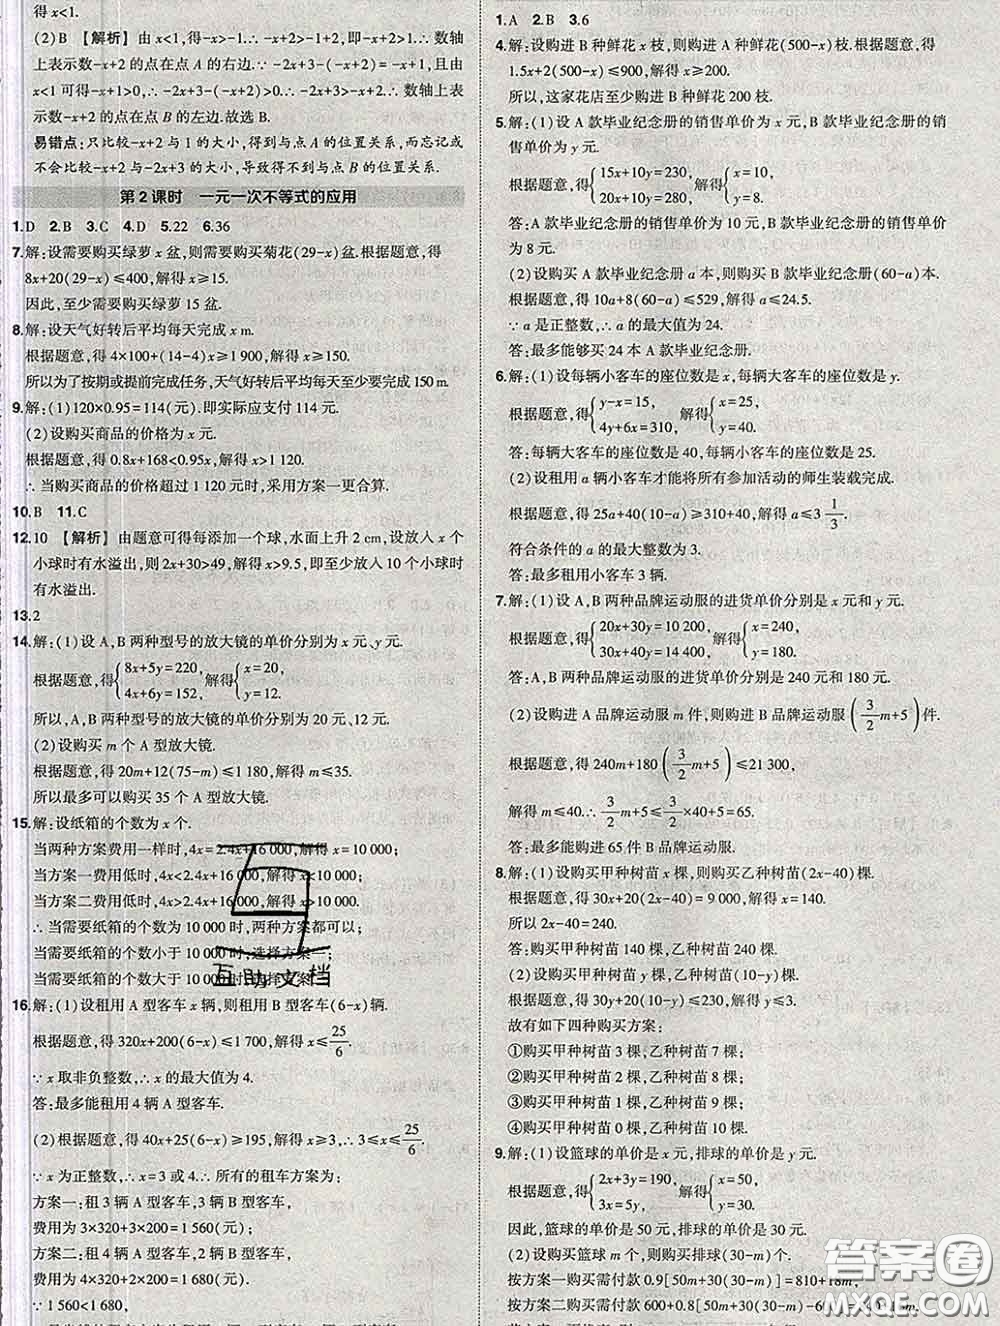 得 x<1.
(2)B 【解析】 由 x<1,得-x>-1.∴-x+2>-1+2,即-x+2>1.∴数轴
上表示数-x+2 的点在点 A 的右边.∵-2x+3-(-x+2)=-x+1,且由
x<1 可得-x+1>0,∴-2x+3-(-x+2)>0.∴-2x+3>-x+2.∴数轴上表
示数-x+2 的点在点 B 的左边.故选 B.
易错点:只比较-x+2 与 1 的大小,得到与点 A 的位置关系,而忘记或
不会比较-x+2 与-2x+3 的大小,导致得不到与点 B 的位置关系.
第 2 课时 一元一次不等式的应用
1.D 2.B 3.C 4.D 5.22 6.36
7.解:设需要购买绿萝 x 盆,则需要购买菊花(29-x)盆.根据题意,得
8x+20(29-x)≤400,解得 x≥15.
因此,至少需要购买绿萝 15 盆.
8.解:设天气好转后平均每天完成 x m.
根据题意,得 4×100+(14-4)x≥1 900,解得 x≥150.
所以为了按期或提前完成任务,天气好转后平均每天至少要完成 150 m.
9.解:(1)120×0.95=114(元).即实际应支付 114 元.
(2)设购买商品的价格为 x 元.
根据题意,得 0.8x+168<0.95x,解得 x>1 120.
∴当购买商品的价格超过 1 120 元时,采用方案一更合算.
10.B 11.C
12.10 【解析】 由题意可得每添加一个球,水面上升 2 cm,设放入 x 个
小球时有水溢出,则 2x+30>49,解得 x>9.5,即至少放入 10 个小球时
有水溢出.
13.2
14.解:(1)设 A,B 两种型号的放大镜的单价分别为 x 元、y 元.
根据题意,得{8x+5y=220, 4x+6y=152, 解得{x=20, y=12.
所以,A,B 两种型号的放大镜的单价分别为 20 元、12 元.
(2)设购买 m 个 A 型放大镜.
根据题意,得 20m+12(75-m)≤1 180,解得 m≤35.
所以最多可以购买 35 个 A 型放大镜.
15.解:设纸箱的个数为 x 个.
当两种方案费用一样时,4x=2.4x+16 000,解得 x=10 000;
当方案一费用低时,4x<2.4x+16 000,解得 x<10 000;
当方案二费用低时,4x>2.4x+16 000,解得 x>10 000.
∴当需要纸箱的个数为 10 000 时,两种方案都可以;
当需要纸箱的个数小于 10 000 时,选择方案一;
当需要纸箱的个数大于 10 000 时,选择方案二.
互助文档
16.解:(1)设租用 A 型客车 x 辆,则租用 B 型客车(6-x)辆.
根据题意,得 320x+200(6-x)≤1 700,解得 x≤25/6.
∵x 取非负整数,∴x 的最大值为 4.
答:最多能租用 4 辆 A 型客车.
(2)根据题意,得 40x+25(6-x)≥195,解得 x≥3,∴3≤x≤25/6.
∵x 为正整数,∴x=3 或 4.∴所有的租车方案为:
方案一:租 3 辆 A 型客车,3 辆 B 型客车,
费用为 3×320+3×200=1 560(元);
方案二:租 4 辆 A 型客车,2 辆 B 型客车,
费用为 4×320+2×200=1 680(元).
∵1 560<1 680,
1.A 2.B 3.6
4.解:设购进 B 种鲜花 x 枝,则购进 A 种鲜花(500-x)枝.根据题意,得
1.5x+2(500-x)≤900,解得 x≥200.
所以,这家花店至少购进 B 种鲜花 200 枝.
5.解:(1)设 A 款毕业纪念册的销售单价为 x 元,B 款毕业纪念册的销
售单价为 y 元.
根据题意,得{15x+10y=230, 20x+10y=280, 解得{x=10, y=8.
答:A 款毕业纪念册的销售单价为 10 元,B 款毕业纪念册的销售单价
为 8 元.
(2)设购买 A 款毕业纪念册 a 本,则购买 B 款毕业纪念册(60-a)本.
根据题意,得 10a+8(60-a)≤529,解得 a≤24.5.
∵a 是正整数,∴a 的最大值为 24.
答:最多能够买 24 本 A 款毕业纪念册.
6.解:(1)设每辆小客车的座位数是 x,每辆大客车的座位数是 y.
根据题意,得{y-x=15, 4y+6x=310, 解得{x=25, y=40.
答:每辆大客车的座位数是 40,每辆小客车的座位数是 25.
(2)设租用 a 辆小客车才能将所有参加活动的师生装载完成.
根据题意,得 25a+40(10-a)≥310+40,解得 a≤3 1/3.
符合条件的 a 的最大整数为 3.
答:最多租用小客车 3 辆.
7.解:(1)设 A,B 两种品牌运动服的进货单价分别是 x 元和 y 元.
根据题意,得{20x+30y=10 200, 30x+40y=14 400, 解得{x=240, y=180.
答:A,B 两种品牌运动服的进货单价分别是 240 元和 180 元.
(2)设购进 A 品牌运动服 m 件,则购进 B 品牌运动服(3/2m+5)件.
根据题意,得 240m+180(3/2m+5)≤21 300,
解得 m≤40.∴3/2m+5≤3/2×40+5=65.
答:最多能购进 65 件 B 品牌运动服.
8.解:(1)设购买甲种树苗 x 棵,则购买乙种树苗(2x-40)棵.
根据题意,得 30x+20(2x-40)=9 000,解得 x=140.
所以 2x-40=240.
答:购买甲种树苗 140 棵,乙种树苗 240 棵.
(2)设购买甲种树苗 y 棵,则购买乙种树苗(10-y)棵.
根据题意,得 30y+20(10-y)≤230,解得 y≤3.
故有如下四种购买方案:
①购买甲种树苗 3 棵,乙种树苗 7 棵;
②购买甲种树苗 2 棵,乙种树苗 8 棵;
③购买甲种树苗 1 棵,乙种树苗 9 棵;
④购买甲种树苗 0 棵,乙种树苗 10 棵.
9.解:(1)设篮球的单价是 x 元,排球的单价是 y 元.
根据题意,得{2x+3y=190, 3x=5y, 解得{x=50, y=30.
因此,篮球的单价是 50 元,排球的单价是 30 元.
(2)设购买篮球 m 个,则购买排球(30-m)个.
按方案一购买需付款 0.9[50m+30(30-m)]=810+18m,
按方案二购买需付款 600+0.8[50m+30(30-m)-600]
答案圈
MXQE.COM